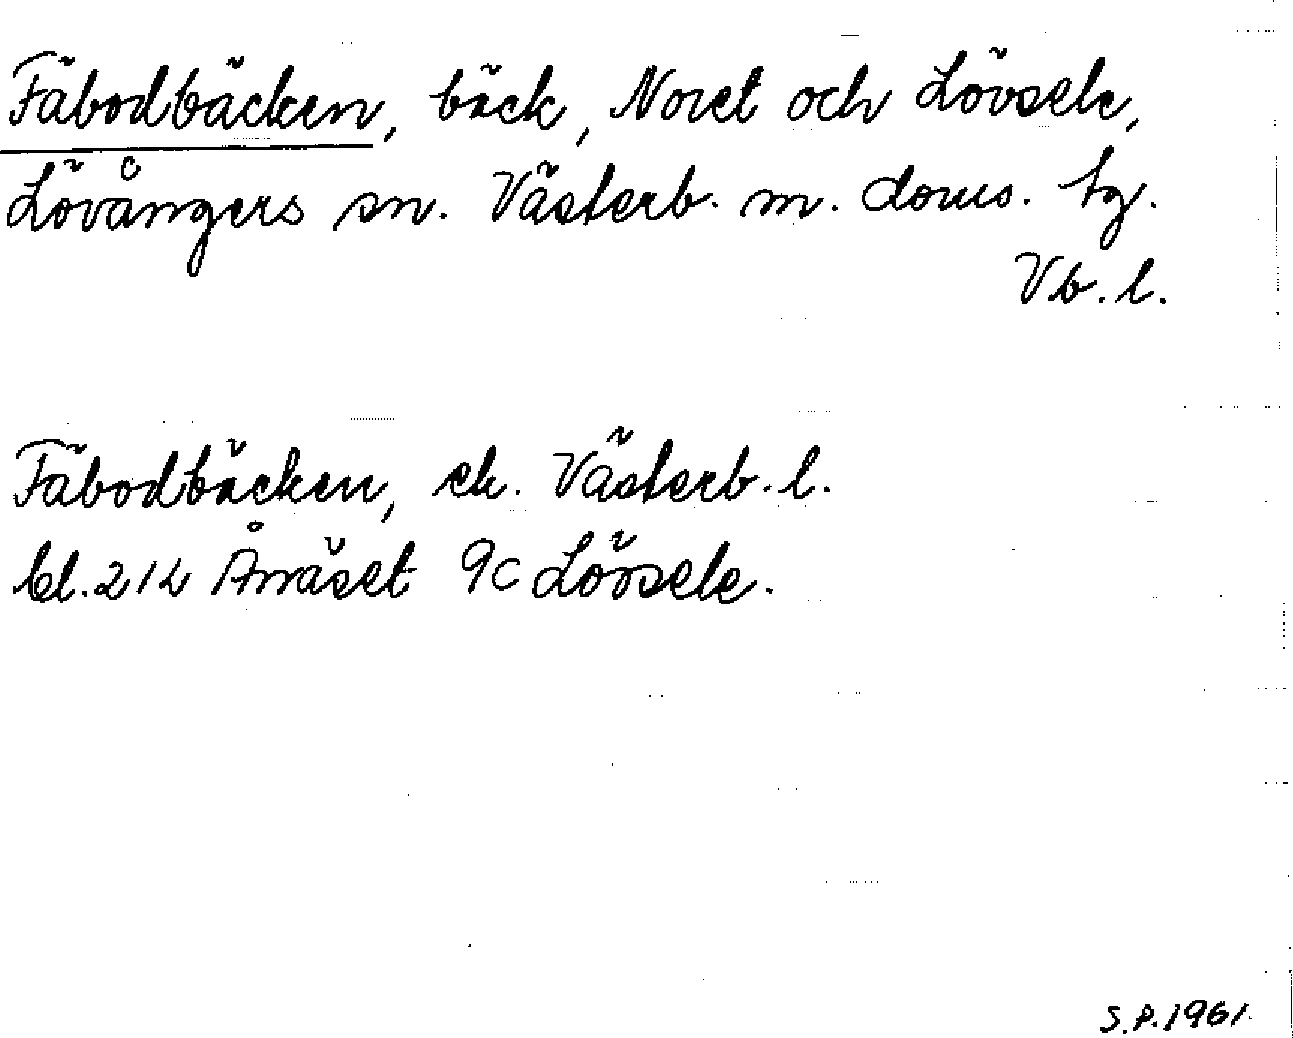 Fäbodbäcken, bäck, Noret och Lövsele,
Lövångers sn. Västerb. m. doms. tg.
Vb. l.
Fäbodbäcken, ek. Västerb. l.
bl. 212 Ånäset 9c Lövsele.
S.P. 1961